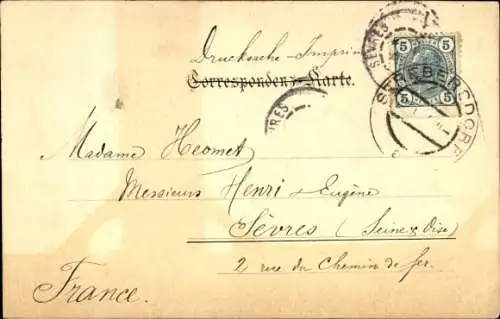 Drucksache - Imprimé
Correspondenz-Karte.
SÈVRES
5 5
5 5
STREBERSDORF
SÈVRES
Madame Heomet
Messieurs Henri & Eugène
Sèvres (Seine & Oise)
2 rue du Chemin de fer.
France.